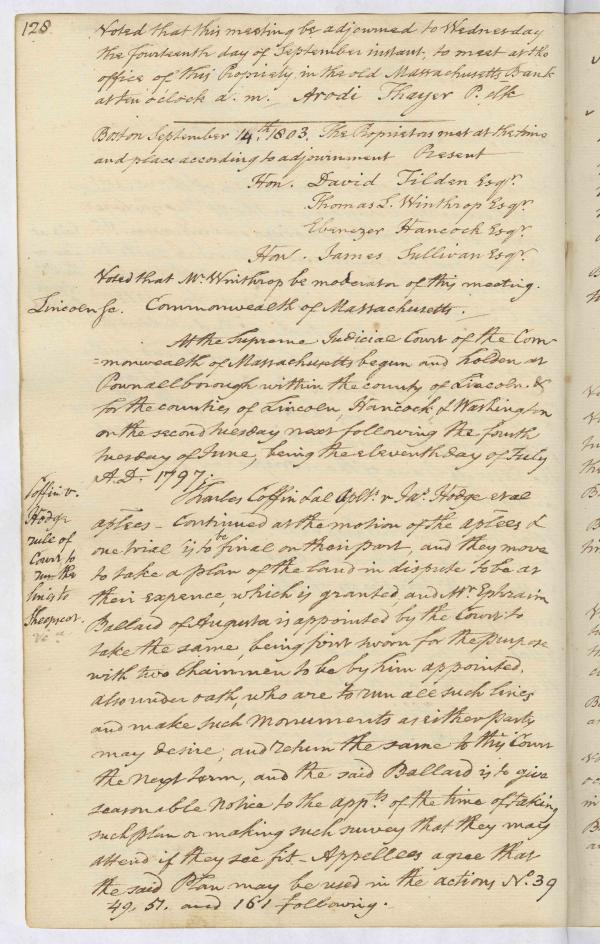 128
Voted that this meeting be adjourned to Wednesday
the fourteenth day of September instant, to meet at the
office of this Propriety, in the old Massachusetts Bank
at ten o'clock a. m. Arodi Thayer P. Clk
Boston September 14th. 1803. The Proprietors met at the time
and place according to adjournment Present
Hon. David Tilden Esqr.
Thomas L. Winthrop Esqr.
Ebenezer Hancock Esqr.
Hon. James Sullivan Esqr.
Voted that Mr. Winthrop be moderator of this meeting.
Lincoln Sc. Commonwealth of Massachusetts.
At the Supreme Judicial Court of the Com-
=monwealth of Massachusetts begun and holden at
Pownallborough within the county of Lincoln, &
for the counties of Lincoln, Hancock, & Washington
on the second tuesday next following the fourth
tuesday of June, being the eleventh day of July
A.D. 1797.
Coffin v.
Hodge
rule of
Court to
run the
lines to
Charles Coffin & al Aplts. v Jas. Hodge et al
apLees - Continued at the motion of the apLees &
one trial is to be final on their part, and they move
to take a plan of the land in dispute to be at
their expence, which is granted, and Mr. Ephraim
Ballard of Augusta is appointed by the Court to
take the same, being first sworn for the purpose
with two chainmen to be by him appointed,
also under oath, who are to run all such lines
and make such Monuments as either party
may desire, and return the same to this Court
the next term, and the said Ballard is to give
seasonable Notice to the appts. of the time of taking
such plan or making such survey that they may
attend if they see fit - Appellees agree that
the said Plan may be used in the actions No. 39
49. 51. and 161 following.